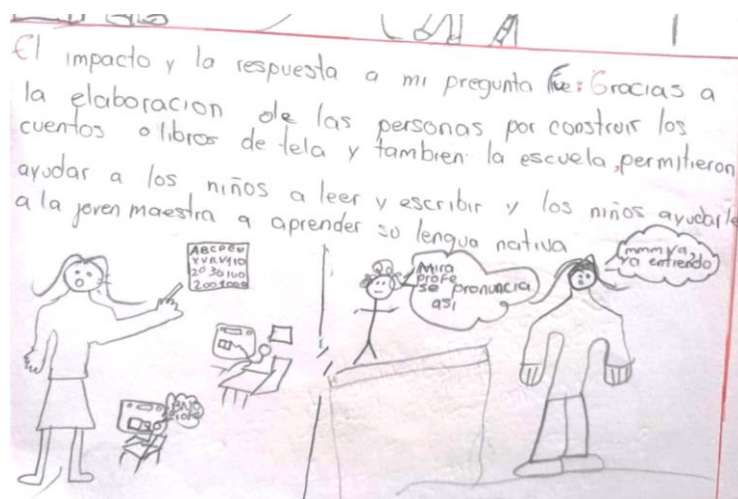 El impacto y la respuesta a mi pregunta fue: Gracias a
la elaboracion de las personas por construir los
cuentos o libros de tela y tambien la escuela, permitieron
ayudar a los niños a leer y escribir y los niños ayudarle
a la joven maestra a aprender su lengua nativa
ABCDEU
20 30 100
200 1000
Mira
profe
se pronuncia
así
mmm ya,
ya entiendo